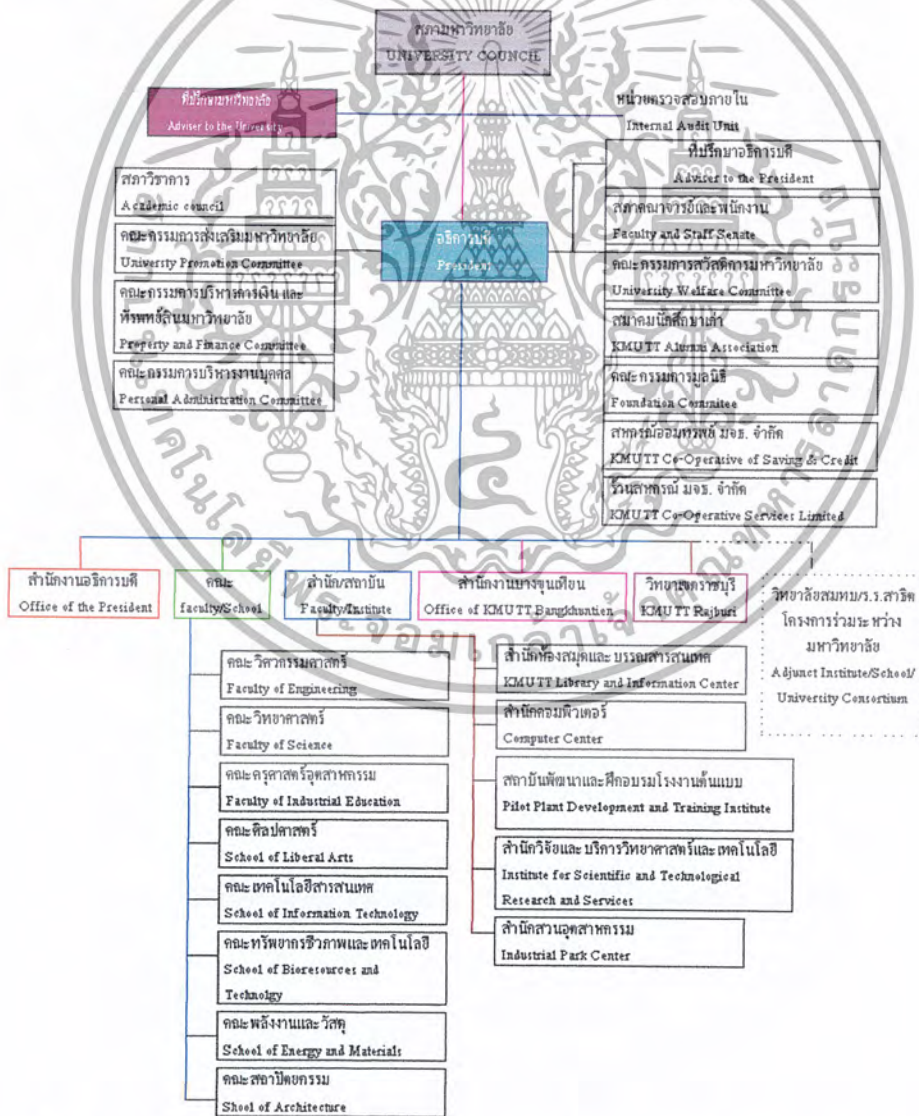 สภามหาวิทยาลัย
UNIVERSITY COUNCIL
ที่ปรึกษามหาวิทยาลัย
Adviser to the University
หน่วยตรวจสอบภายใน
Internal Audit Unit
ที่ปรึกษาอธิการบดี
Adviser to the President
สภาวิชาการ
Academic council
คณะกรรมการส่งเสริมมหาวิทยาลัย
University Promotion Committee
คณะกรรมการบริหารการเงิน และ
ทรัพย์สินมหาวิทยาลัย
Property and Finance Committee
คณะกรรมการบริหารงานบุคคล
Personal Administration Committee
อธิการบดี
President
สภาคณาจารย์และพนักงาน
Faculty and Staff Senate
คณะกรรมการสวัสดิการมหาวิทยาลัย
University Welfare Committee
สมาคมนักศึกษาเก่า
KMUTT Alumni Association
คณะกรรมการมูลนิธิ
Foundation Commitee
สหกรณ์ออมทรัพย์ มจธ. จำกัด
KMUTT Co-Operative of Saving & Credit
ร้านสหกรณ์ มจธ. จำกัด
KMUTT Co-Operative Services Limited
สำนักงานอธิการบดี
Office of the President
คณะ
faculty/School
สำนัก/สถาบัน
Faculty/Institute
สำนักงานบางขุนเทียน
Office of KMUTT Bangkhuntien
วิทยาเขตราชบุรี
KMUTT Rajburi
วิทยาลัยสมทบ/ร.ร.สาธิต
โครงการร่วมระหว่าง
มหาวิทยาลัย
Adjunct Institute/School/
University Consortium
คณะวิศวกรรมศาสตร์
Faculty of Engineering
คณะวิทยาศาสตร์
Faculty of Science
คณะครุศาสตร์อุตสาหกรรม
Faculty of Industrial Education
คณะศิลปศาสตร์
School of Liberal Arts
คณะเทคโนโลยีสารสนเทศ
School of Information Technology
คณะทรัพยากรชีวภาพและเทคโนโลยี
School of Bioresources and
Technolgy
คณะพลังงานและวัสดุ
School of Energy and Materials
คณะสถาปัตยกรรม
Shool of Architecture
สำนักห้องสมุดและ บรรณสารสนเทศ
KMUTT Library and Information Center
สำนักคอมพิวเตอร์
Computer Center
สถาบันพัฒนาและฝึกอบรมโรงงานต้นแบบ
Pilot Plant Development and Training Institute
สำนักวิจัยและ บริการวิทยาศาสตร์และเทคโนโลยี
Institute for Scientific and Technological
Research and Services
สำนักสวนอุตสาหกรรม
Industrial Park Center
สถาบันเทคโนโลยีพระจอมเกล้าเจ้าคุณทหารลาดกระบัง